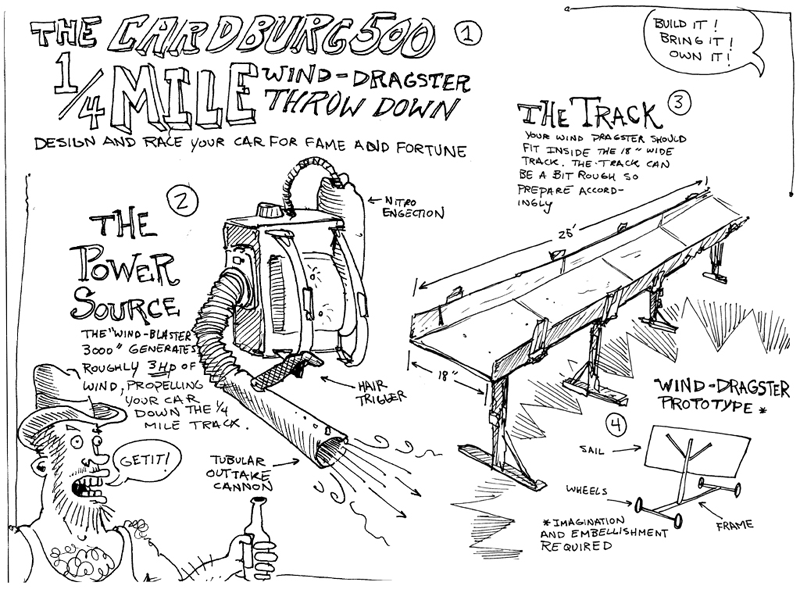 THE CARDBURG 500
1
1/4 MILE WIND-DRAGSTER
THROW DOWN
DESIGN AND RACE YOUR CAR FOR FAME AND FORTUNE
BUILD IT!
BRING IT!
OWN IT!
2
THE
POWER
SOURCE
THE "WIND-BLASTER
3000" GENERATES
ROUGHLY 3HP OF
WIND, PROPELLING
YOUR CAR
DOWN THE 1/4
MILE TRACK.
NITRO
ENGECTION
HAIR
TRIGGER
TUBULAR
OUTTAKE
CANNON
GET IT!
THE TRACK
3
YOUR WIND DRAGSTER SHOULD
FIT INSIDE THE 18" WIDE
TRACK. THE TRACK CAN
BE A BIT ROUGH SO
PREPARE ACCORD-
INGLY
25'
18"
WIND-DRAGSTER
PROTOTYPE *
4
SAIL
WHEELS
FRAME
* IMAGINATION
AND EMBELLISHMENT
REQUIRED